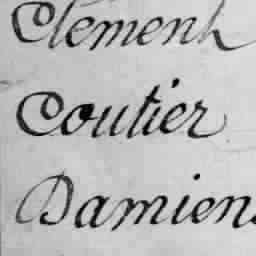 Clement
Coutier
Damien